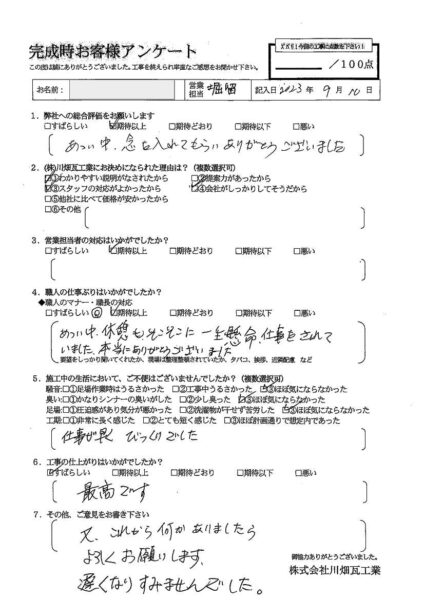 完成時お客様アンケート
この度は誠にありがとうございました。工事を終えられ率直なご感想をお聞かせ下さい。
ズバリ！今回の工事に点数を下さい！
/100点
お名前：
営業担当 堀留 記入日 2023年 9月 10日
1．弊社への総合評価をお願いします
□すばらしい ☑期待以上 □期待どおり □期待以下 □悪い
あつい中、念を入れてもらいありがとうございました
2．(株)川畑瓦工業にお決めになられた理由は？（複数選択可）
☑①わかりやすい説明がなされたから ☑②提案力があったから
☑③スタッフの対応がよかったから ☑④会社がしっかりしてそうだから
□⑤他社に比べて価格が安かったから
□⑥その他
3．営業担当者の対応はいかがでしたか？
□すばらしい ☑期待以上 □期待どおり □期待以下 □悪い
4．職人の仕事ぶりはいかがでしたか？
◆職人のマナー・職長の対応
□すばらしい ◎ □期待以上 □期待どおり □期待以下 □悪い
あつい中、休憩もそこそこに一生懸命仕事をされて
いました。本当にありがとうございました
要望をしっかり聞いてくれたか、現場は整理整頓されていたか、タバコ、挨拶、近隣配慮 など
5．施工中の生活において、ご不便はございませんでしたか？（複数選択可）
騒音：□①足場作業時はうるさかった □②工事中うるさかった ☑③ほぼ気にならなかった
臭い：□①かなりシンナーの臭いがした □②少し臭った ☑③ほぼ気にならなかった
足場：□①圧迫感があり気分が悪かった □②洗濯物が干せず苦労した ☑③ほぼ気にならなかった
工期：□①非常に長く感じた □②とても短く感じた □③ほぼ計画通りで想定内であった
仕事が早く びっくりでした
6．工事の仕上がりはいかがでしたか？
☑すばらしい □期待以上 □期待どおり □期待以下 □悪い
最高です
7．その他、ご意見をお書き下さい
又、これから何かありましたら
よろしくお願いします、
遅くなりすみませんでした。
御協力ありがとうございました。
株式会社川畑瓦工業